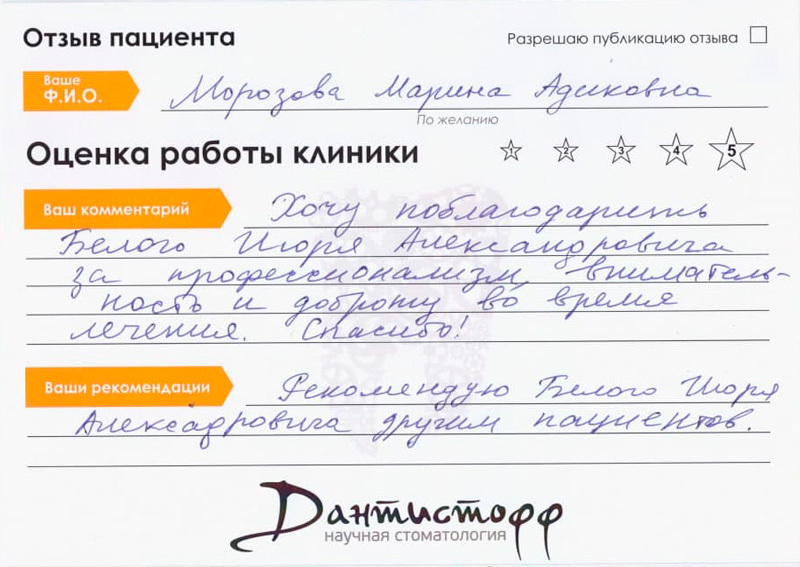 Отзыв пациента
Разрешаю публикацию отзыва
Ваше
Ф.И.О.
Морозова Марина Адиковна
По желанию
Оценка работы клиники
1 2 3 4 5
Ваш комментарий
Хочу поблагодарить
Белого Игоря Александровича
за профессионализм, вниматель-
ность и доброту во время
лечения. Спасибо!
Ваши рекомендации
Рекомендую Белого Игоря
Александровича другим пациентов.
Дантистофф
научная стоматология